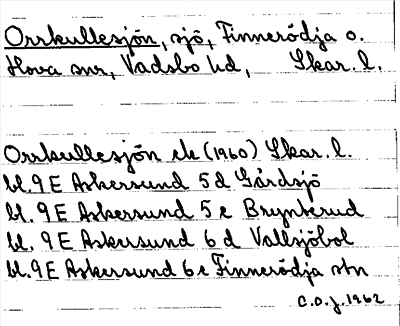 Orrkullesjön, sjö, Finnerödja o.
Hova snr, Vadsbo hd, Skar. l.
Orrkullesjön ek (1960) Skar. l.
bl. 9E Askersund 5d Gårdsjö
bl. 9E Askersund 5e Brynterud
bl. 9E Askersund 6d Vallsjöbol
bl. 9E Askersund 6e Finnerödja stn
C.O.J. 1962